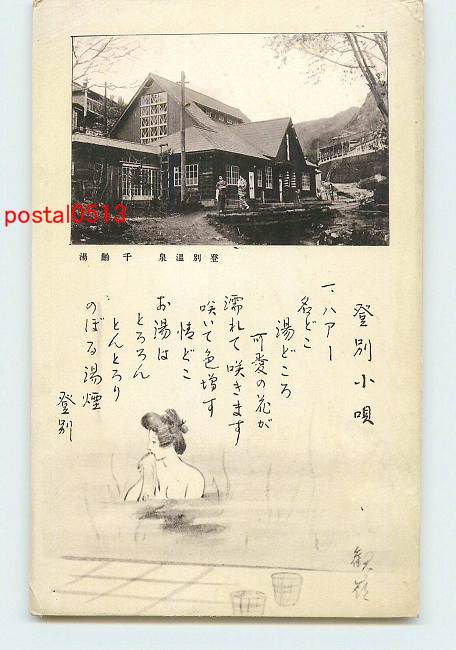 登別温泉 千齢湯
登別小唄
一、ハアー
名どこ
湯どころ
可愛の花が
濡れて咲きます
咲いて色増す
情どこ
お湯は
とろろん
とんとろり
のぼる湯煙
登別
postal0513